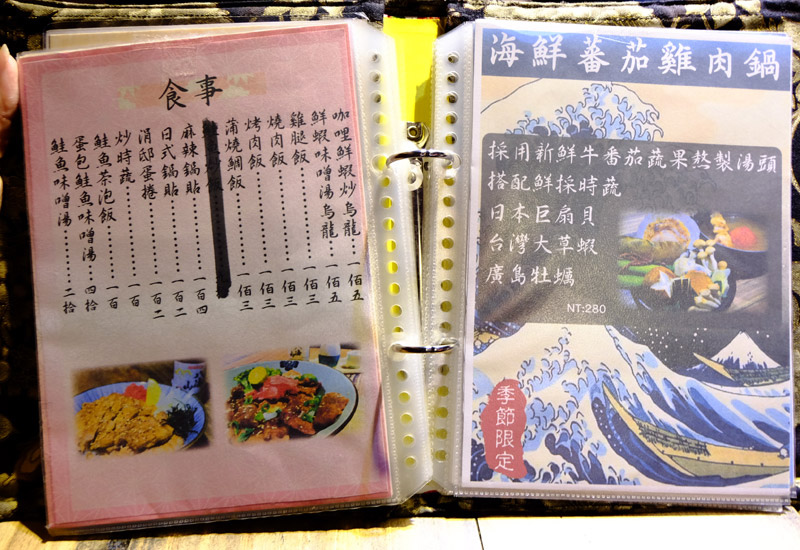 食事
咖哩鮮蝦炒烏龍……一佰五
鮮蝦味噌湯烏龍……一佰五
雞腿飯……一佰三
燒肉飯……一佰三
烤肉飯……一佰三
蒲燒鯛飯……一佰三
麻辣鍋貼……一百四
日式鍋貼……一百二
涓邸蛋捲……一百二
炒時蔬……一百
鮭魚茶泡飯……一百
蛋包鮭魚味噌湯……四拾
鮭魚味噌湯……二拾
海鮮蕃茄雞肉鍋
採用新鮮牛番茄蔬果熬製湯頭
搭配鮮採時蔬
日本巨扇貝
台灣大草蝦
廣島牡蠣
NT:280
季節限定